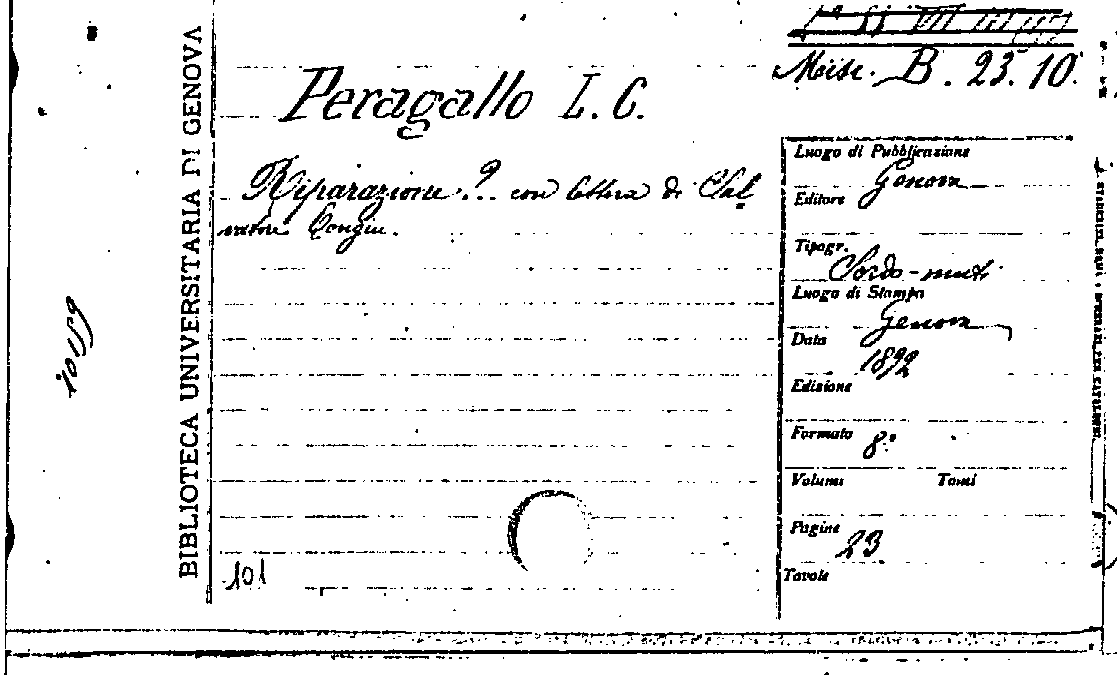 Misc. B. 23. 10.
BIBLIOTECA UNIVERSITARIA DI GENOVA
Peragallo L. C.
Riparazione?.. con lettera di Sal
vatore Congiu.
10159
101
Luogo di Pubblicazione
Genova
Editore
Tipogr.
Sordo-muti
Luogo di Stampa
Genova
Data
1892
Edizione
Formato 8°
Volumi Tomi
Pagine
23
Tavole